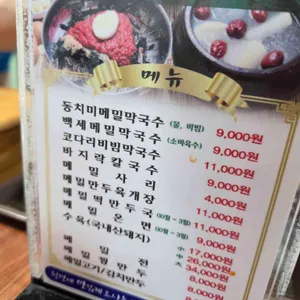 메뉴
동치미메밀막국수 (물, 비빔) 9,000원
백세메밀막국수 (소바육수) 9,000원
코다리비빔막국수 11,000원
바지락칼국수 9,000원
메밀사리 4,000원
메밀만두육개장 11,000원
메밀떡만두국 (10월~3월) 11,000원
메밀온면 (10월~3월) 9,000원
수육(국내산돼지) 소 17,000원
중 26,000원
대 34,000원
메밀전 8,000원
메밀찐만두 8,000원
메밀고기/김치만두